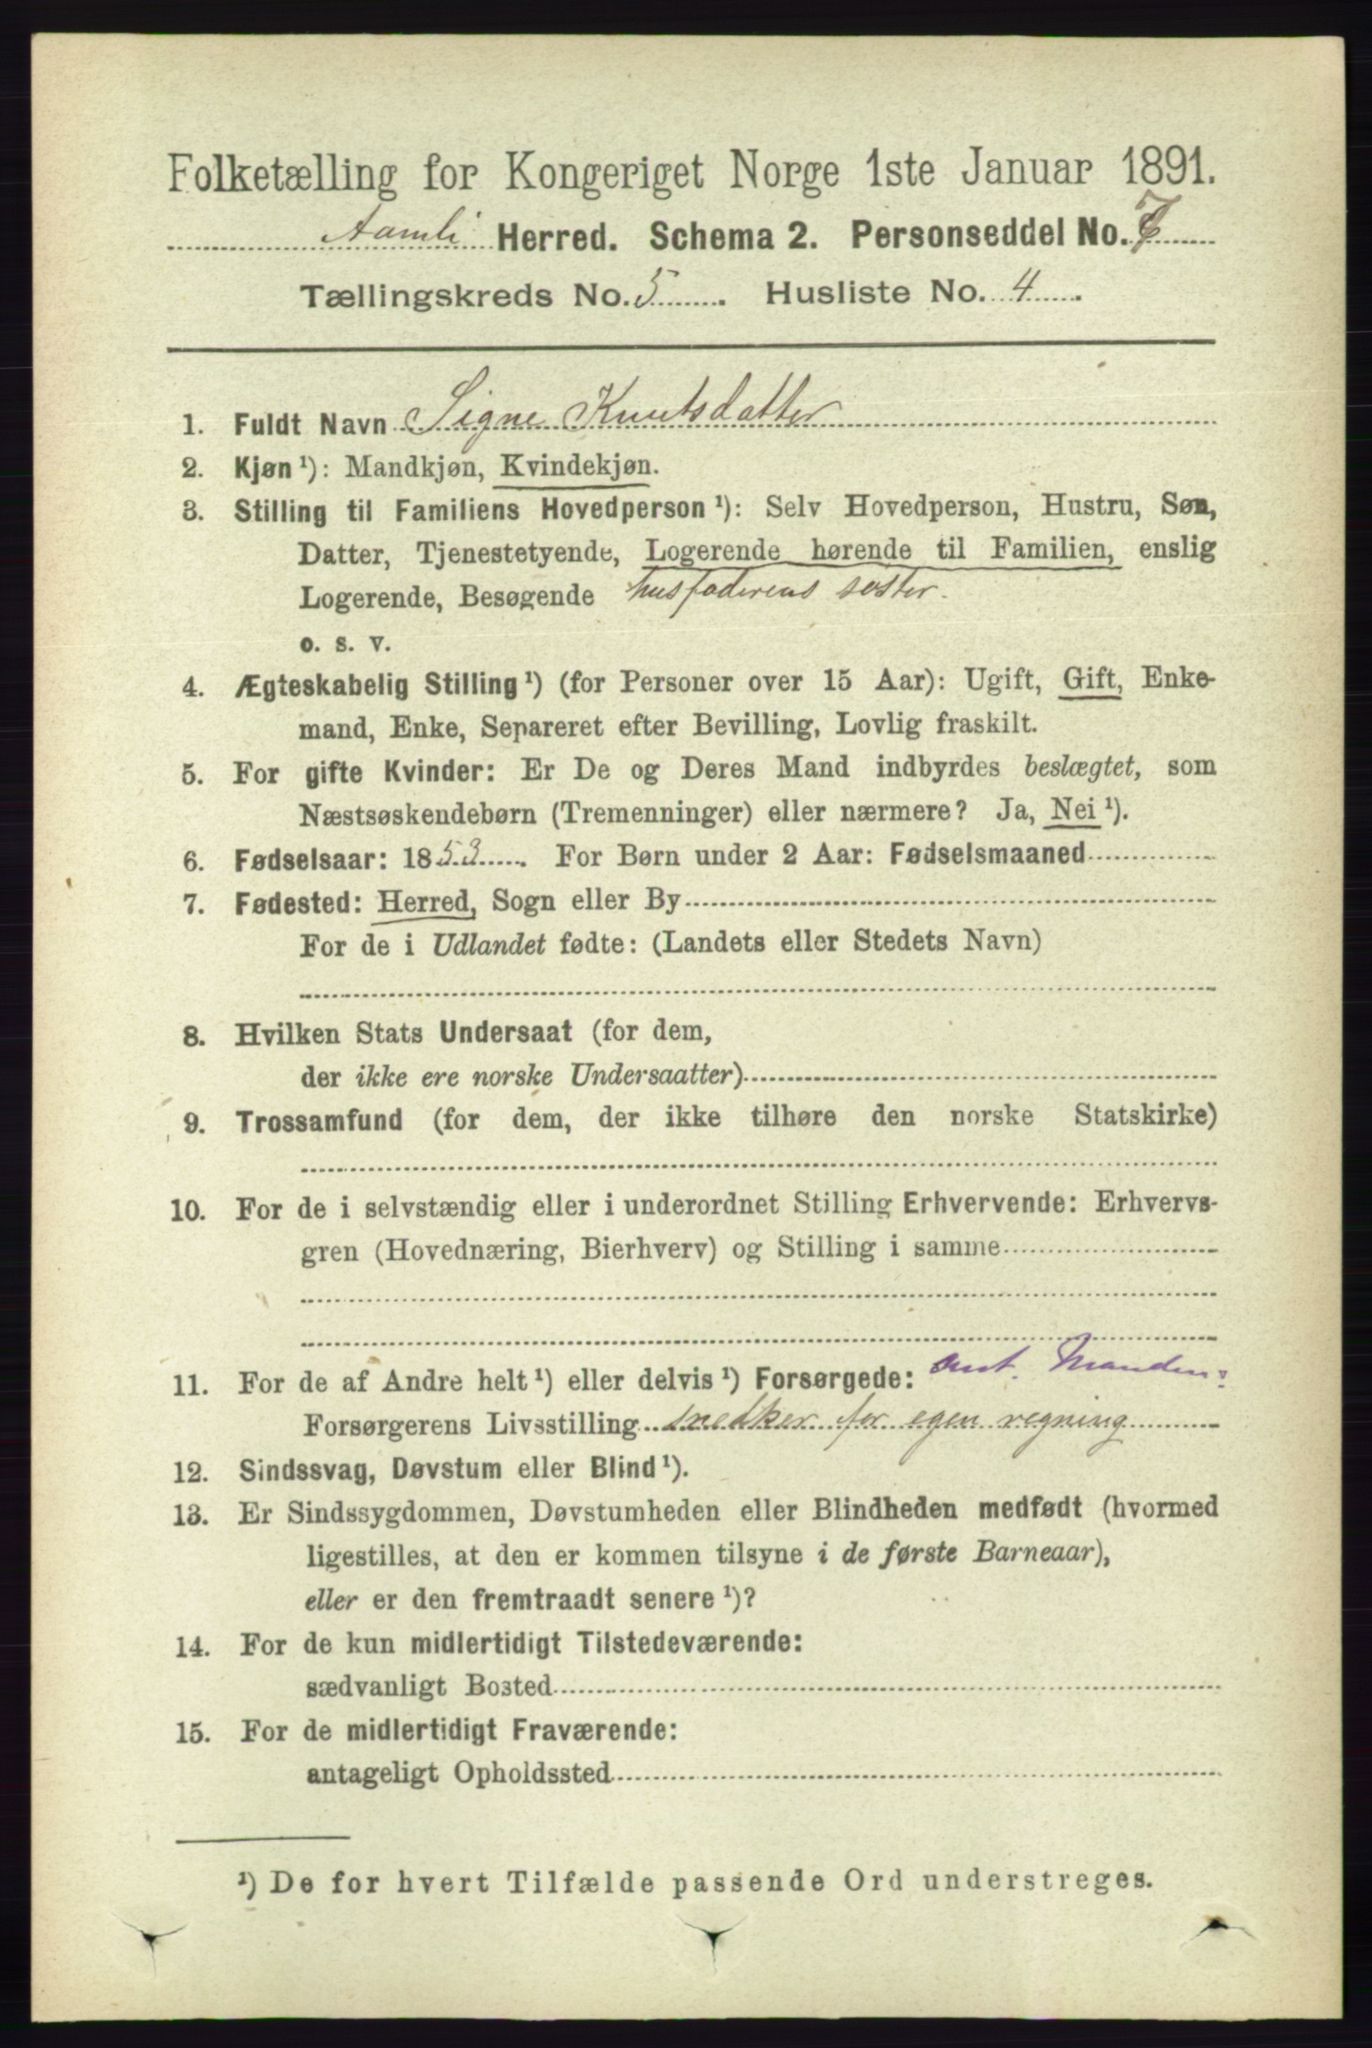 Folketælling for Kongeriget Norge 1ste Januar 1891.
Aamli Herred. Schema 2. Personseddel No. 7
Tællingskreds No. 5. Husliste No. 4.
1. Fuldt Navn Signe Knutsdatter
2. Kjøn ¹): Mandkjøn, Kvindekjøn.
3. Stilling til Familiens Hovedperson ¹): Selv Hovedperson, Hustru, Søn,
Datter, Tjenestetyende, Logerende hørende til Familien, enslig
Logerende, Besøgende husfaderens søster.
o. s. v.
4. Ægteskabelig Stilling ¹) (for Personer over 15 Aar): Ugift, Gift, Enke-
mand, Enke, Separeret efter Bevilling, Lovlig fraskilt.
5. For gifte Kvinder: Er De og Deres Mand indbyrdes beslægtet, som
Næstsøskendebørn (Tremenninger) eller nærmere? Ja, Nei ¹).
6. Fødselsaar: 1853. For Børn under 2 Aar: Fødselsmaaned
7. Fødested: Herred, Sogn eller By
For de i Udlandet fødte: (Landets eller Stedets Navn)
8. Hvilken Stats Undersaat (for dem,
der ikke ere norske Undersaatter)
9. Trossamfund (for dem, der ikke tilhøre den norske Statskirke)
10. For de i selvstændig eller i underordnet Stilling Erhvervende: Erhvervs-
gren (Hovednæring, Bierhverv) og Stilling i samme
11. For de af Andre helt ¹) eller delvis ¹) Forsørgede: ant. Manden:
Forsørgerens Livsstilling snedker for egen regning
12. Sindssvag, Døvstum eller Blind ¹).
13. Er Sindssygdommen, Døvstumheden eller Blindheden medfødt (hvormed
ligestilles, at den er kommen tilsyne i de første Barneaar),
eller er den fremtraadt senere ¹)?
14. For de kun midlertidigt Tilstedeværende:
sædvanligt Bosted
15. For de midlertidigt Fraværende:
antageligt Opholdssted
¹) De for hvert Tilfælde passende Ord understreges.